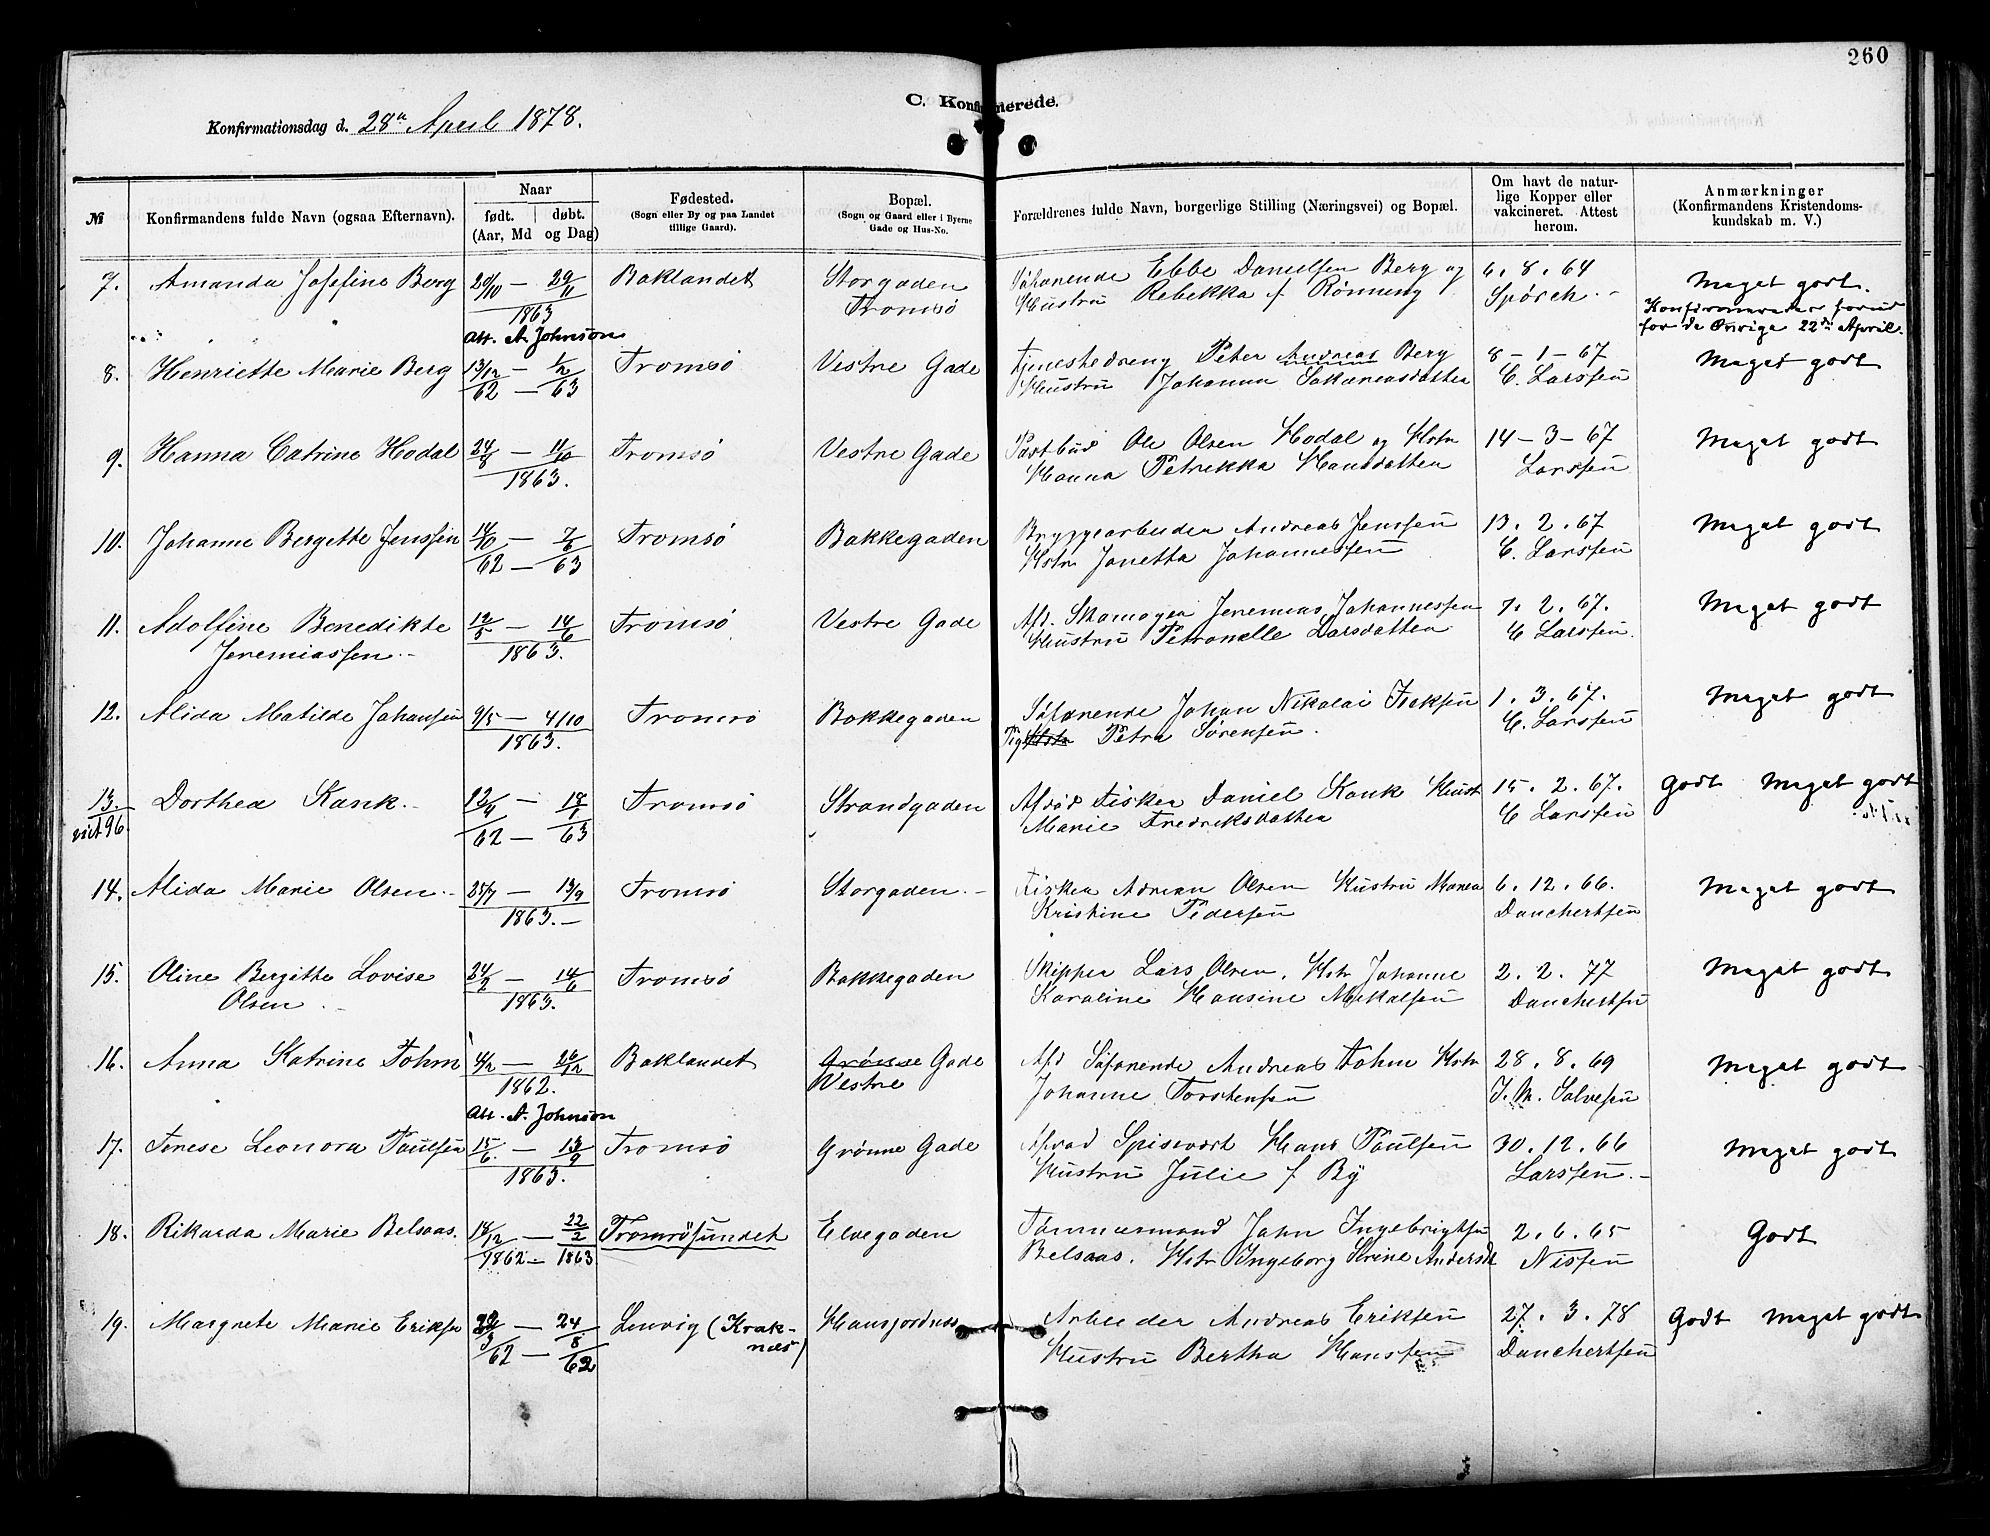 260
C. Konfirmerede.
Konfirmationsdag d. 28de April 1878.
№
Konfirmandens fulde Navn (ogsaa Efternavn).
Naar
født. | døbt.
(Aar, Md og Dag)
Fødested.
(Sogn eller By og paa Landet
tillige Gaard).
Bopæl.
(Sogn og Gaard eller i Byerne
Gade og Hus-No.
Forældrenes fulde Navn, borgerlige Stilling (Næringsvei) og Bopæl.
Om havt de natur-
lige Kopper eller
vakcineret. Attest
herom.
Anmærkninger
(Konfirmandens Kristendoms-
kundskab m. V.)
7. Amanda Josefine Berg 20/10 — 29/11 Baklandet Storgaden Søfarende Ebbe Danielsen Berg og 6. 8. 64 Meget godt.
1863 Tromsø Hustru Rebekka f Rønning Spörck.
Att. A. Johnson Konfirmeredes forud
for de Øvrige 22de April.
8. Henriette Marie Berg 13/12 — 1/2 Tromsø Vestre Gade Tjenestedreng Peter Andreas Berg 8 - 1 - 67 Meget godt
62 — 63 Hustru Johanna Sakariasdatter C. Larssen
9. Hanna Catrine Hodal 24/8 — 11/10 Tromsø Vestre Gade Postbud Ole Olsen Hodal og Hstr 14 - 3 - 67 Meget godt
1863. Hanna Petrikka Hansdatter Larssen
10. Johanne Bergette Jenssen 14/10 — 7/6 Tromsø Bakkegaden Bryggearbeider Andreas Jenssen 13. 2. 67 Meget godt
62 — 63 Hstr. Janetta Johannessen C. Larssen
11. Adolfine Benedikte 12/5 — 14/6 Tromsø Vestre Gade Afd. Skomager Jeremias Johannessen 7. 2. 67. Meget godt
Jeremiassen 1863. Hustru Petronelle Larsdatter C Larssen
12. Alida Matilde Johansen 9/5 — 4/10 Tromsø Bakkegaden Søfarende Johan Nikolai Isaksen 1. 3. 67. Meget godt
1863. Pige Hstr Petra Sørensen. C. Larssen
13. Dorthea Kank. 12/9 — 18/7 Tromsø Strandgaden Afdød Fisker Daniel Kank Hust 15. 2. 67. Godt Meget godt
vict 96. 62 — 63 Marie Fredriksdatter C Larssen
14. Alida Marie Olsen 25/7 — 13/9 Tromsø Storgaden Fisker Adrian Olsen Hustru Maren 6. 12. 66. Meget godt
1863. Kristine Pedersen Danchertsen
15. Oline Bergitte Lovise 24/2 — 14/6 Tromsø Bakkegaden Skipper Lars Olsen, Hstr Johanne 2. 2. 77 Meget godt
Olsen 1863. Karoline Hansine Mikalsen Danchertsen
16. Anna Katrine Fohm 4/2 — 26/12 Baklandet Grönne Gade Afd Søfarende Andreas Fohm Hstr 28. 8. 69 Meget godt
1862. Vestre Johanne Torstensen J. M. Salvesen
Att. A. Johnson
17. Terese Leonora Paulsen 15/6. — 13/9 Tromsø Grönne Gade Afdød Spisevært Hans Paulsen 30. 12. 66 Meget godt
1863. Hustru Julie f By Larssen.
18. Rikarda Marie Belsaas. 18/12 — 22/2 Tromsøsundet Elvegaden Tømmermand John Ingebrigtsen 2. 6. 65 Godt
1862 — 1863 Belsaas. Hstr Ingeborg Strine Andersd Nissen
19. Margrete Marie Eriksen 22/3 — 24/8 Lenvig (Krak- Hansjordnes Arbeider Andreas Eriksen 27. 3. 78 Godt Meget godt
62 — 62 næs) Hustru Bertha Hanssen Danchertsen